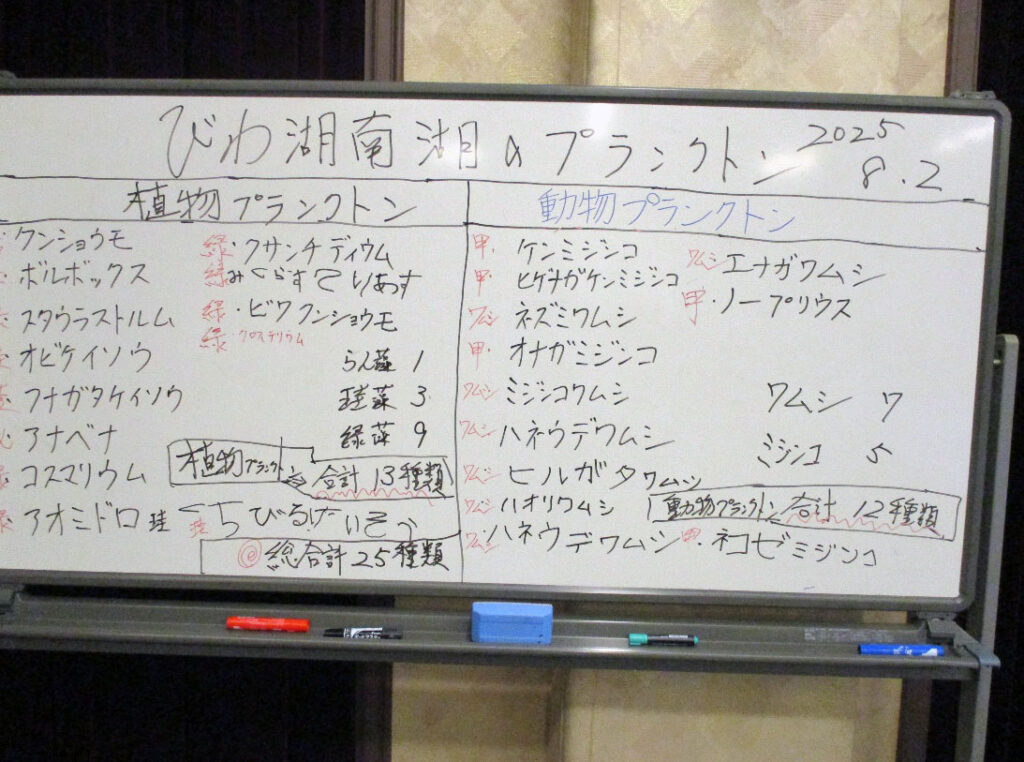 びわ湖南湖のプランクトン 2025
8.2
植物プランクトン
クンショウモ
ボルボックス
スタウラストルム
オビケイソウ
フナガタケイソウ
アナベナ
コスマリウム
アオミドロ 珪
緑・クサンチディウム
緑 みくらすてりあす
緑・ビワクンショウモ
緑・クロステリウム
らん藻 1
珪藻 3
緑藻 9
植物プランクトン 合計 13種類
珪 くちびるけいそう
総合計 25種類
動物プランクトン
甲・ケンミジンコ
甲・ヒゲナガケンミジンコ
ワムシ ネズミワムシ
甲・オナガミジンコ
ワムシ ミジンコワムシ
ワムシ ハネウデワムシ
ワムシ ヒルガタワムシ
ワムシ ハオリワムシ
ワムシ ハネウデワムシ
ワムシ エナガワムシ
甲・ノープリウス
ワムシ 7
ミジンコ 5
動物プランクトン 合計 12種類
甲・ネコゼミジンコ